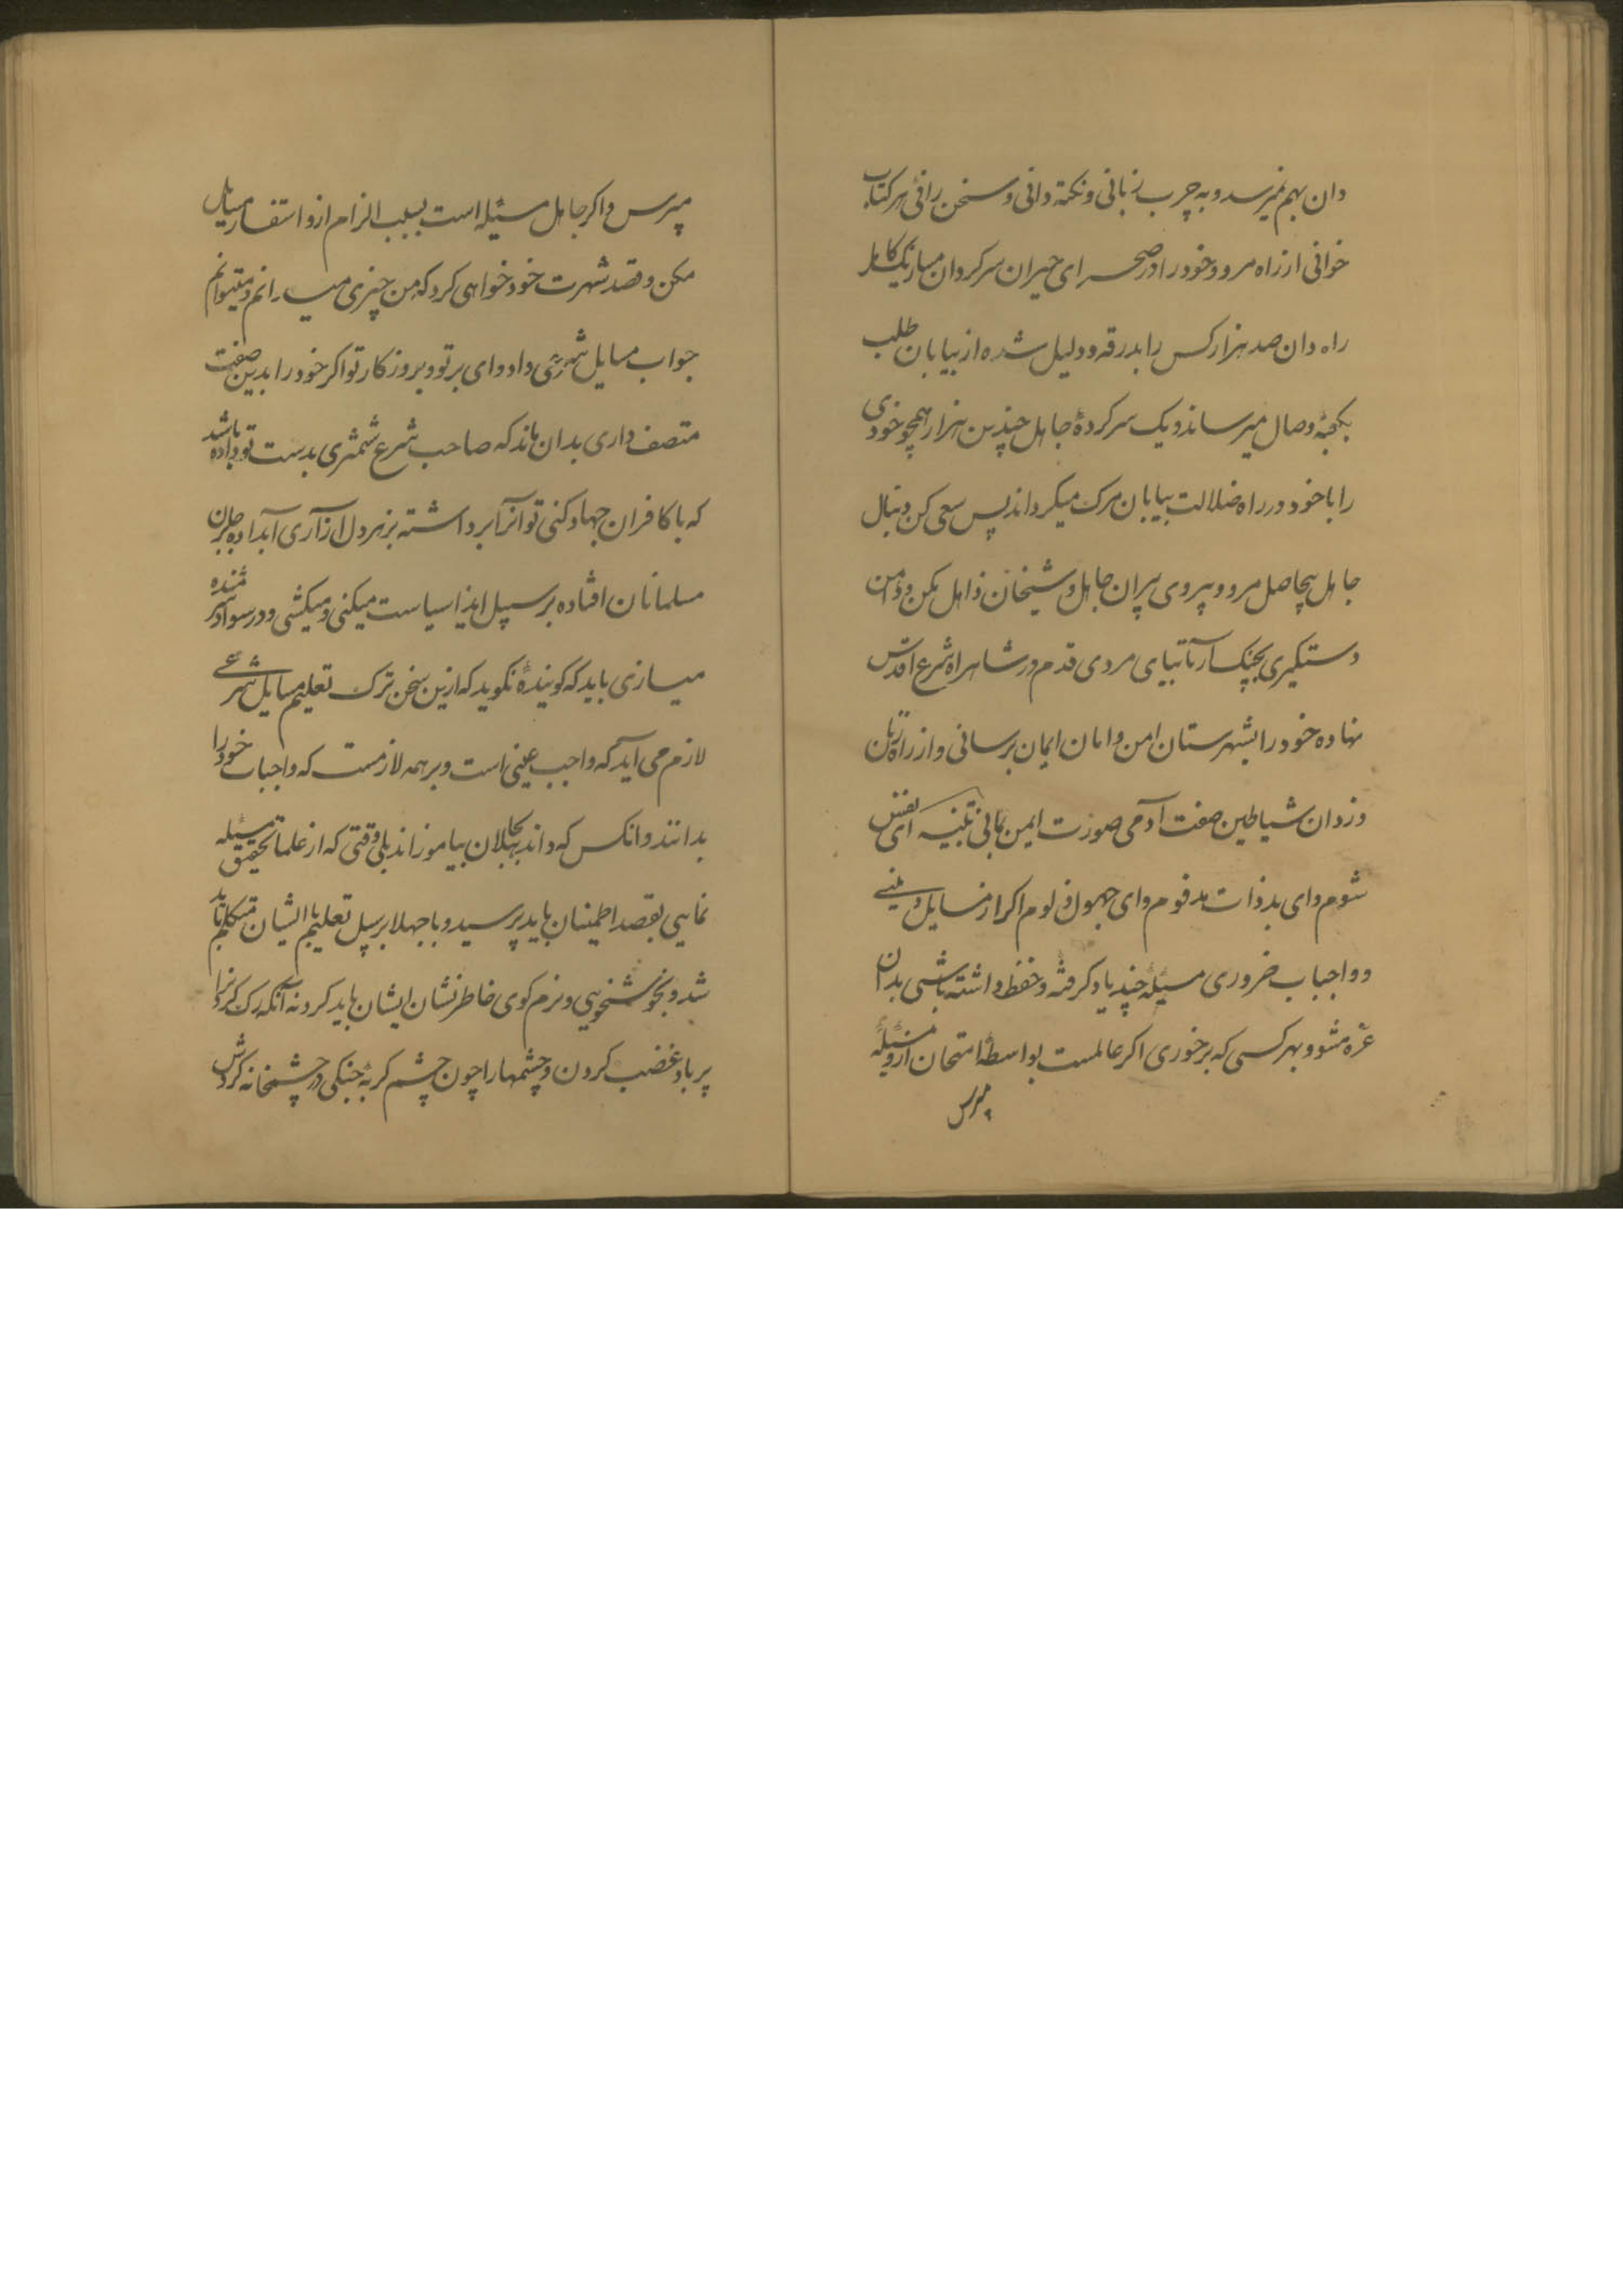 دان بهم نمیرسد و به چرب زبانی و نکته دانی و سخن رانی هر کتاب
خوانی از راه مرو و خود را در صحرای حیران سرکردان مساز یک کامل
راه دان صد هزار کس را بدرقه و دلیل شده از بیابان طلب
بکعبهٔ وصال میرساند و یک سرکردهٔ جاهل چندین هزار همچو خودی
را با خود در راه ضلالت بیابان مرک میکرداند پس سعی کن و دنبال
جاهل بیحاصل مرو و پیروی پیران جاهل و شیخان ذاهل مکن و دامن
دستکیری بچنک آر تا بپای مردی قدم در شاهراه شرع اقدس
نهاده خود را بشهرستان امن و امان ایمان برسانی و از راه زنان
دزدان شیاطین صفت آدمی صورت ایمن بمانی تنبیه ای نفس
شوم و ای بدذات مذموم و ای جهول و لوم اکر از مسایل دینی
و واجبات ضروری مسئلهٔ چند یاد کرفته و حفظ داشته باشی بدان
غره مشو و بهر کسی که برخوری اکر عالمست بواسطهٔ امتحان ازو مسئلهٔ
مپرس
مپرس و اکر جاهل مسئله است بسبب الزام ازو استفسار مسایل
مکن و قصد شهرت خود خواهی کرد که من چیزی میدانم و میتوانم
جواب مسایل شرعی داد وای بر تو و بروزکار تو اکر خود را بدین صفت
متصف داری بدان ماند که صاحب شرع شمشری بدست تو داده باشد
که با کافران جهاد کنی تو آنرا برداشته بزهر دل آزاری آبداده بر جان
مسلمانان افتاده بر سبیل ایذا سیاست میکنی و میکشی و در رسوا
میسازی باید که کویندهٔ نکوید که ازین سخن ترک تعلیم مسایل شرعی
لازم می آید که واجب عینی است و بر همه لازمست که واجبات خود را
بدانند و انکس که داند بجاهلان بیاموزاند بلی وقتی که از علما تحقیق مسئله
نمایی بقصد اطمینان باید پرسید و با جهلا بر سبیل تعلیم با ایشان متکلم باید
شد و بخوشخویی و نرم کوی خاطر نشان ایشان باید کرد نه آنکه رک کردن را
پر باد غضب کردن و چشمها را چون چشم کربهٔ جنکی در چشمخانه کردش